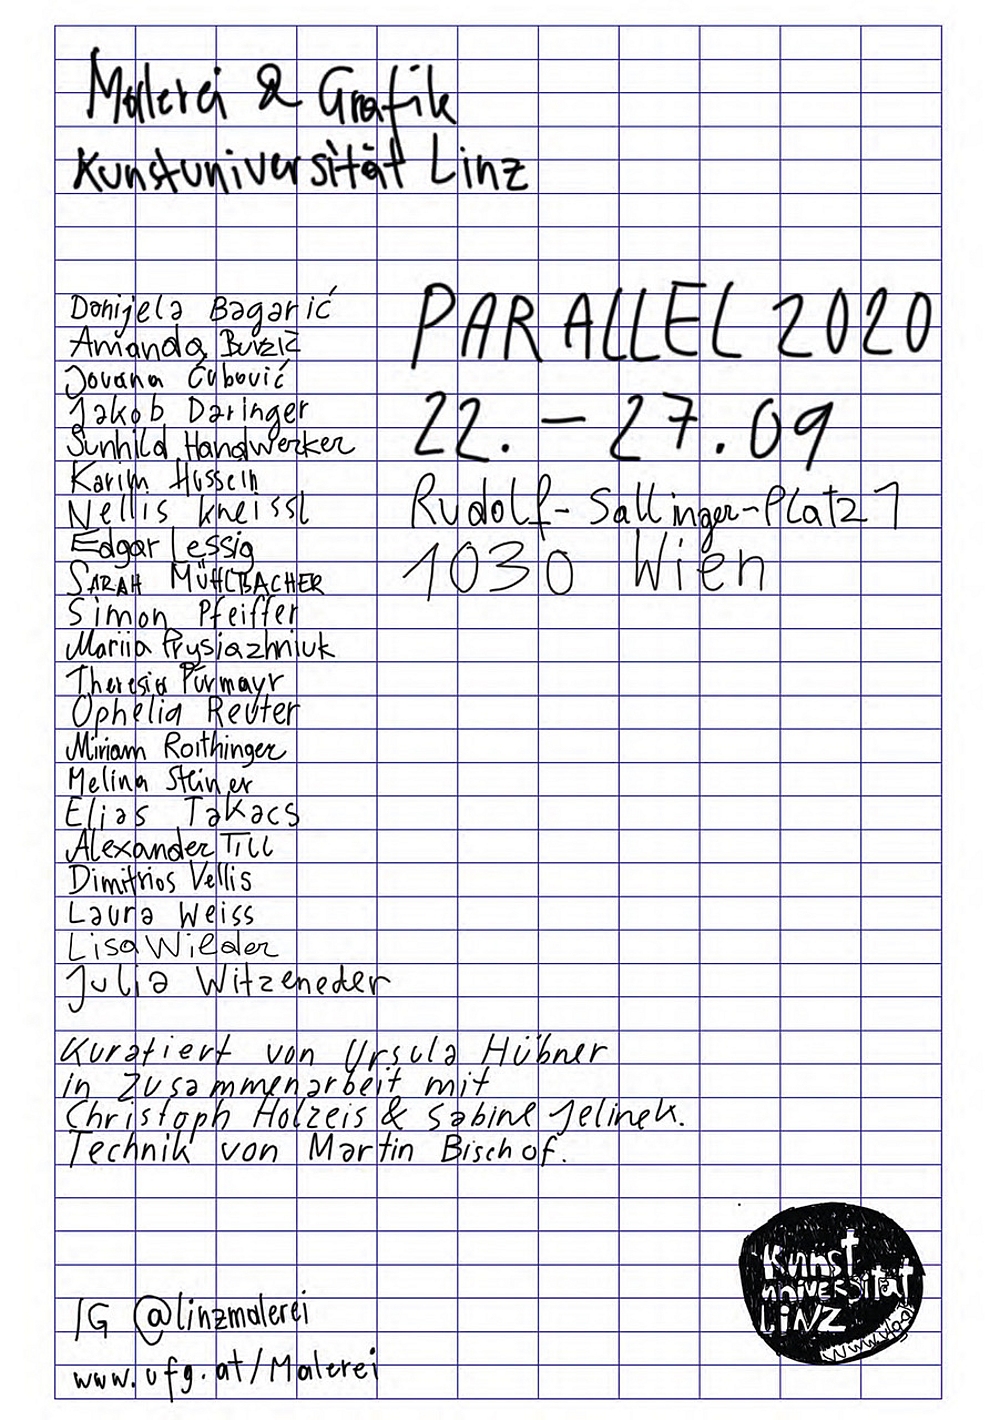 Malerei & Grafik
Kunstuniversität Linz
PARALLEL 2020
22. – 27.09
Rudolf-Sallinger-Platz 1
1030 Wien
Danijela Bagarić
Amanda Burzić
Jovana Čubović
Jakob Daringer
Sunhild Handwerker
Karim Hussein
Nellis Kneissl
Edgar Lessig
SARAH MÜHLBACHER
Simon Pfeiffer
Mariia Prysiazhniuk
Theresia Pürmayr
Ophelia Reuter
Miriam Roithinger
Melina Steiner
Elias Takacs
Alexander Till
Dimitrios Vellis
Laura Weiss
Lisa Wieder
Julia Witzeneder
Kuratiert von Ursula Hübner
in Zusammenarbeit mit
Christoph Holzeis & Sabine Jelinek.
Technik von Martin Bischof.
IG @linzmalerei
www.ufg.at/Malerei
Kunst
universität
LiNZ